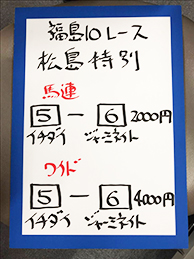 福島10レース
松島特別
馬連
5 ー 6 2000円
イチダイ ジャーミネイト
ワイド
5 ー 6 4000円
イチダイ ジャーミネイト